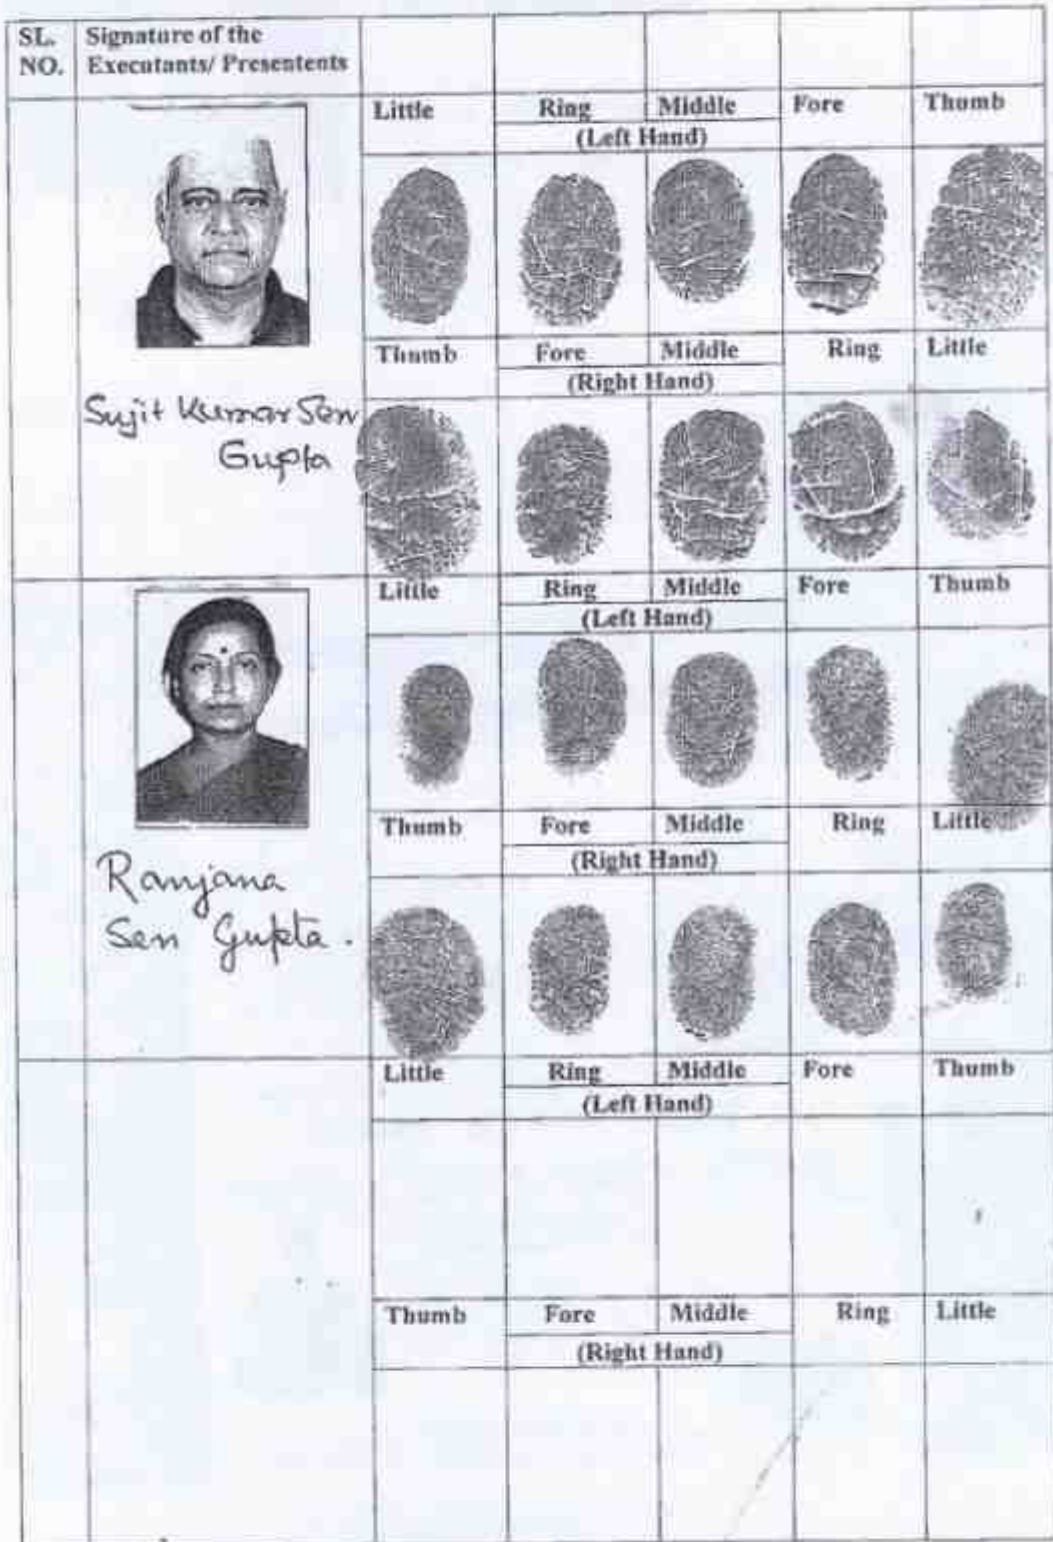 SL. NO. Signature of the Executants/ Presentents
Little Ring Middle Fore Thumb
(Left Hand)
Thumb Fore Middle Ring Little
(Right Hand)
Sujit Kumar Sen
Gupta
Little Ring Middle Fore Thumb
(Left Hand)
Thumb Fore Middle Ring Little
(Right Hand)
Ranjana
Sen Gupta.
Little Ring Middle Fore Thumb
(Left Hand)
Thumb Fore Middle Ring Little
(Right Hand)